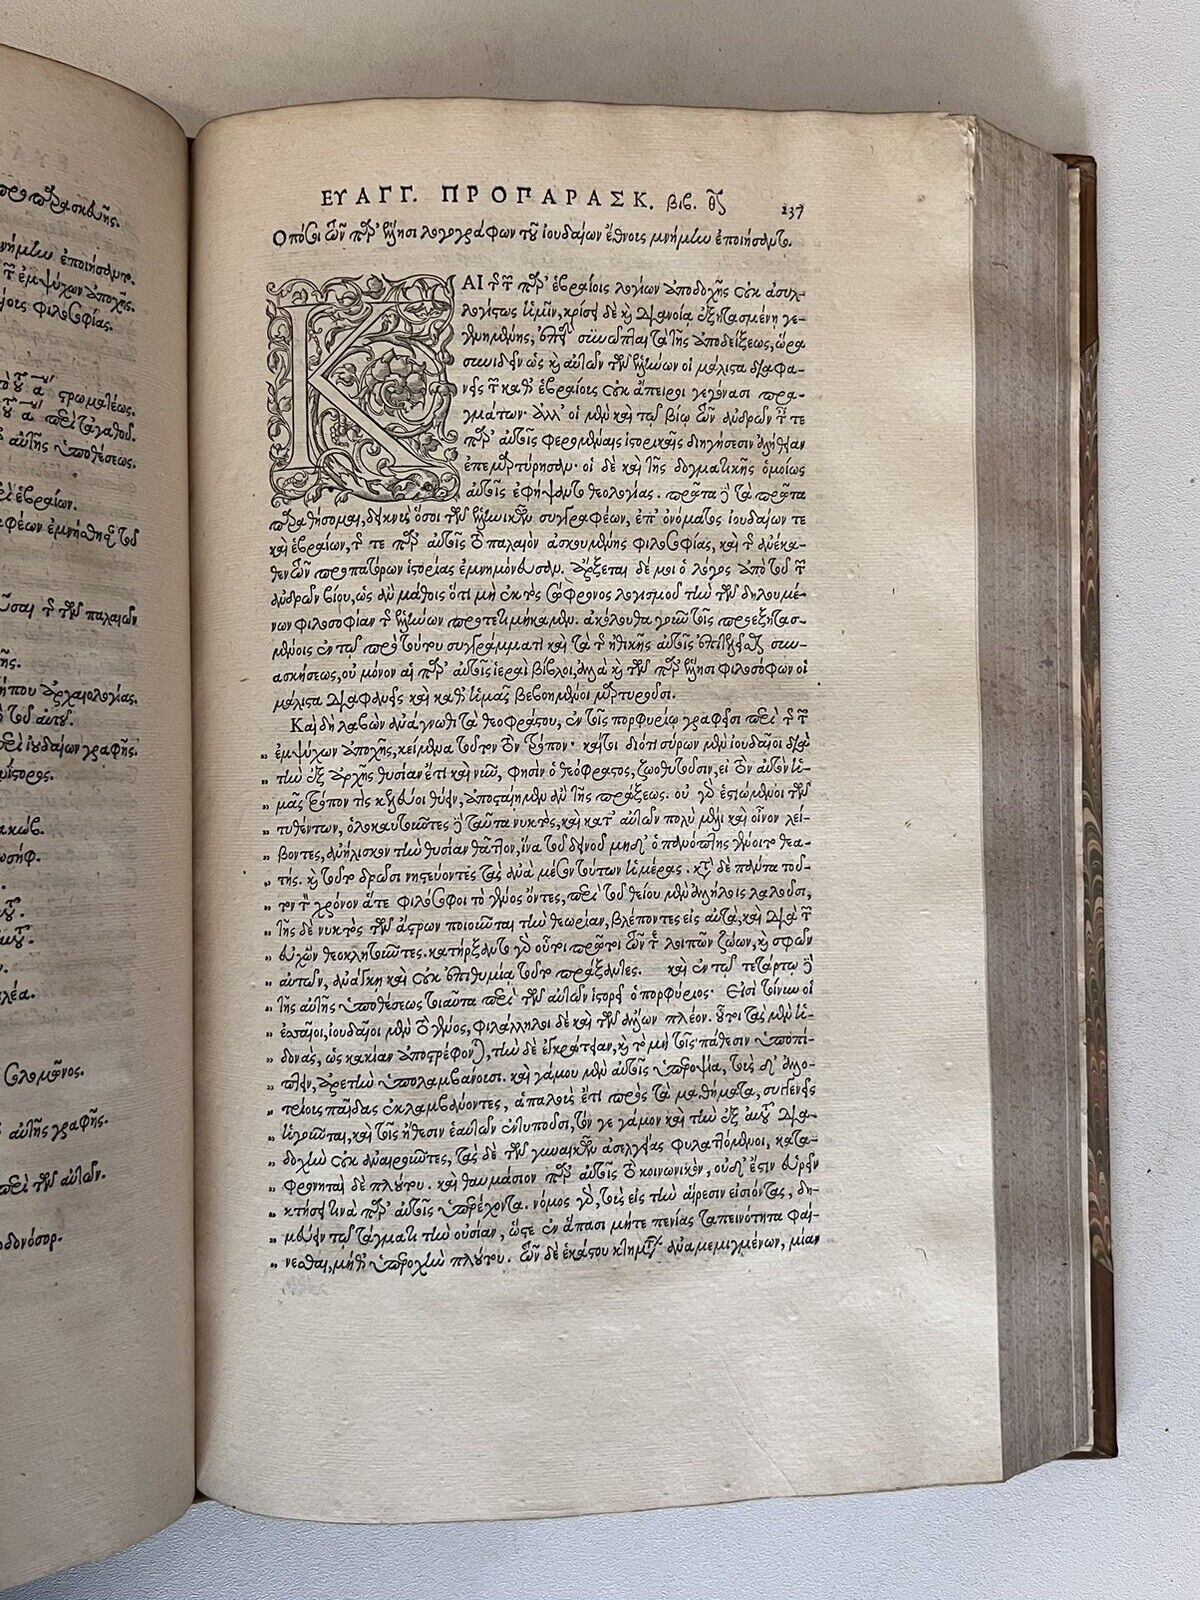 νήμην ἐποίησαντο.
ἐμψύχων ἀποχῆς.
φιλοσοφίας.
στρωματέως.
περὶ τἀγαθοῦ.
αὐτῆς ὑποθέσεως.
ἑβραίων.
τῶν παλαιῶν
ἀρχαιολογίας.
τοῦ αὐτοῦ.
ἰουδαίων γραφῆς.
σολομῶνος.
αὐτῆς γραφῆς.
περὶ τῶν αὐτῶν.
ΕΥΑΓΓ. ΠΡΟΠΑΡΑΣΚ. βιβ. θ 237
Οπόσοι τῶν παρ' ἕλλησι λογογράφων τοῦ ἰουδαίων ἔθνοις μνήμην ἐποίησαντο.
ΚΑΙ τῆς τῶν παρ' ἑβραίοις λογίων ἀποδοχῆς οὐκ ἀσυλ-
λογίστως ἡμῖν, κρίσει δὲ καὶ διανοίᾳ ἐξητασμένῃ γε-
γενημένης, ἐπεὶ συνωπται τὰ τῆς ἀποδείξεως, ὥρα
συνιδεῖν ὡς καὶ αὐτῶν τῶν ἑλλήνων οἱ μάλιστα διαφα-
νεῖς τῶν καθ' ἑβραίοις οὐκ ἄπειροι γεγόνασι πρα-
γμάτων· ἀλλ' οἱ μὲν καὶ τῷ βίῳ τῶν ἀνδρῶν ταῖς τε
παρ' αὐτοῖς φερομέναις ἱστορικαῖς διηγήσεσιν ἀλήθειαν
ἐπεμαρτύρησαν· οἱ δὲ καὶ τῆς δογματικῆς ὁμοίως
αὐτοῖς ἐφήψαντο θεολογίας. πρῶτα δὲ τὰ πρῶτα
παραθήσομαι, δεικνὺς ὅσοι τῶν ἑλληνικῶν συγγραφέων, ἐπ' ὀνόματος ἰουδαίων τε
καὶ ἑβραίων, τῆς τε παρ' αὐτοῖς τὸ παλαιὸν ἀσκουμένης φιλοσοφίας, καὶ τῆς ἀνέκα-
θεν τῶν προπατόρων ἱστορίας ἐμνημόνευσαν. ἄρξεται δέ μοι ὁ λόγος ἀπὸ τοῦ τῶν
ἀνδρῶν βίου, ὡς ἂν μάθοις ὅτι μὴ ἐκτὸς σώφρονος λογισμοῦ τὴν τῶν δηλουμέ-
νων φιλοσοφίαν τῆς ἑλλήνων προτετιμήκαμεν. ἀκόλουθα γοῦν τοῖς προεξητασ-
μένοις ἐν τῷ πρὸ τούτου συγγράμματι καὶ τὰ τῆς ἠθικῆς αὐτοῖς ἐπιδείξαι συν-
ασκήσεως, οὐ μόνον αἱ παρ' αὐτοῖς ἱεραὶ βίβλοι, ἀλλὰ καὶ τῶν παρ' ἕλλησι φιλοσόφων οἱ
μάλιστα διαφανεῖς καὶ καθ' ἡμᾶς βεβοημένοι μαρτυροῦσι.
Καὶ δὴ λαβὼν ἀνάγνωθι τὰ θεοφράστου, ἐν τοῖς πορφυρίῳ γραφεῖσι περὶ τῆς τῶν
ἐμψύχων ἀποχῆς, κείμενα τοῦτον τὸν τρόπον· καίτοι διότι σύρων μὲν ἰουδαῖοι διὰ
τὴν ἐξ ἀρχῆς θυσίαν ἔτι καὶ νῦν, φησὶν ὁ θεόφραστος, ζωοθυτοῦσιν, εἰ τὸν αὐτὸν ἡ-
μᾶς τρόπον τὶς κελεύοι θύειν, ἀποσταίημεν ἂν τῆς πράξεως. οὐ γὰρ ἑστιώμενοι τῶν
τυθέντων, ὁλοκαυτοῦντες δὲ ταῦτα νυκτός, καὶ κατ' αὐτῶν πολὺ μέλι καὶ οἶνον λεί-
βοντες, ἀνήλισκον τὴν θυσίαν θᾶττον, ἵνα τοῦ δεινοῦ μηδ' ὁ πανόπτης γένοιτο θεα-
τής. καὶ τοῦτο δρῶσι νηστεύοντες τὰς ἀνὰ μέσον τούτων ἡμέρας. κατὰ δὲ πάντα τοῦ-
τον τὸν χρόνον ἅτε φιλόσοφοι τὸ γένος ὄντες, περὶ τοῦ θείου μὲν ἀλλήλοις λαλοῦσι,
τῆς δὲ νυκτὸς τῶν ἄστρων ποιοῦνται τὴν θεωρίαν, βλέποντες εἰς αὐτά, καὶ διὰ τῶν
εὐχῶν θεοκλητοῦντες. κατήρξαντο γὰρ οὗτοι πρῶτοι τῶν τε λοιπῶν ζώων, καὶ σφῶν
αὐτῶν, ἀνάγκῃ καὶ οὐκ ἐπιθυμίᾳ τοῦτο πράξαντες. καὶ ἐν τῷ τετάρτῳ δὲ
τῆς αὐτῆς ὑποθέσεως τοιαῦτα περὶ τῶν αὐτῶν ἱστορεῖ ὁ πορφύριος· Εἰσὶ τοίνυν οἱ
ἐσσαῖοι, ἰουδαῖοι μὲν τὸ γένος, φιλάλληλοι δὲ καὶ τῶν ἄλλων πλέον. οὗτοι τὰς μὲν ἡ-
δονὰς, ὡς κακίαν ἀποστρέφονται, τὴν δὲ ἐγκράτειαν, καὶ τὸ μὴ τοῖς πάθεσιν ὑποπί-
πτειν, ἀρετὴν ὑπολαμβάνουσι. καὶ γάμου μὲν αὐτοῖς ὑπεροψία, τοὺς δ' ἀλλο-
τρίους παῖδας ἐκλαμβάνοντες, ἁπαλοὺς ἔτι πρὸς τὰ μαθήματα, συγγενεῖς
ἡγοῦνται, καὶ τοῖς ἤθεσιν ἑαυτῶν ἐντυποῦσι, τόν γε γάμον καὶ τὴν ἐξ αὐτοῦ δια-
δοχὴν οὐκ ἀναιροῦντες, τὰς δὲ τῶν γυναικῶν ἀσελγείας φυλαττόμενοι, κατα-
φρονηταὶ δὲ πλούτου. καὶ θαυμάσιον παρ' αὐτοῖς τὸ κοινωνικόν, οὐδ' ἔστιν εὑρεῖν
κτήσει τινὰ παρ' αὐτοῖς ὑπερέχοντα. νόμος γὰρ, τοὺς εἰς τὴν αἵρεσιν εἰσιόντας, δη-
μεύειν τῷ τάγματι τὴν οὐσίαν, ὥστε ἐν ἅπασι μήτε πενίας ταπεινότητα φαί-
νεσθαι, μήθ' ὑπεροχὴν πλούτου. τῶν δὲ ἑκάστου κτημάτων ἀναμεμιγμένων, μίαν